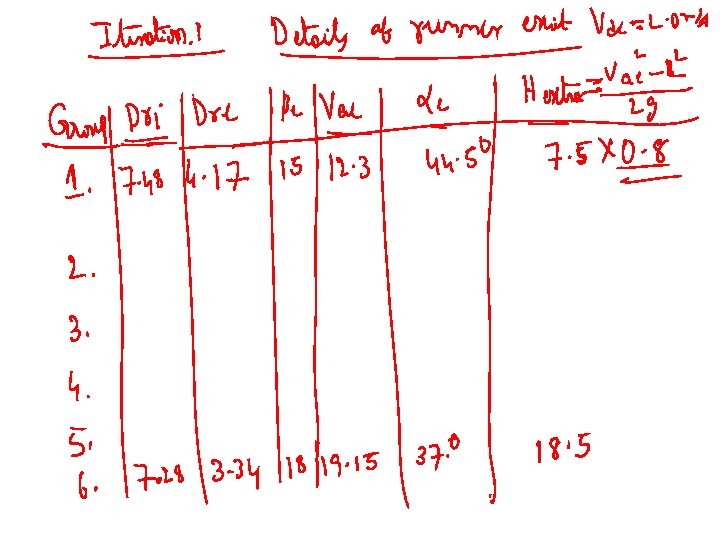 Itiration.1 Details of runner exit Vde = 2.0 m/s
Group Dri Dre βe Vae αe H extra = Vae² - 2² / 2g
1. 7.48 4.17 15 12.3 44.5⁰ 7.5 X 0.8
2.
3.
4.
5.
6. 7.28 3.34 18 19.15 37.⁰ 18.5